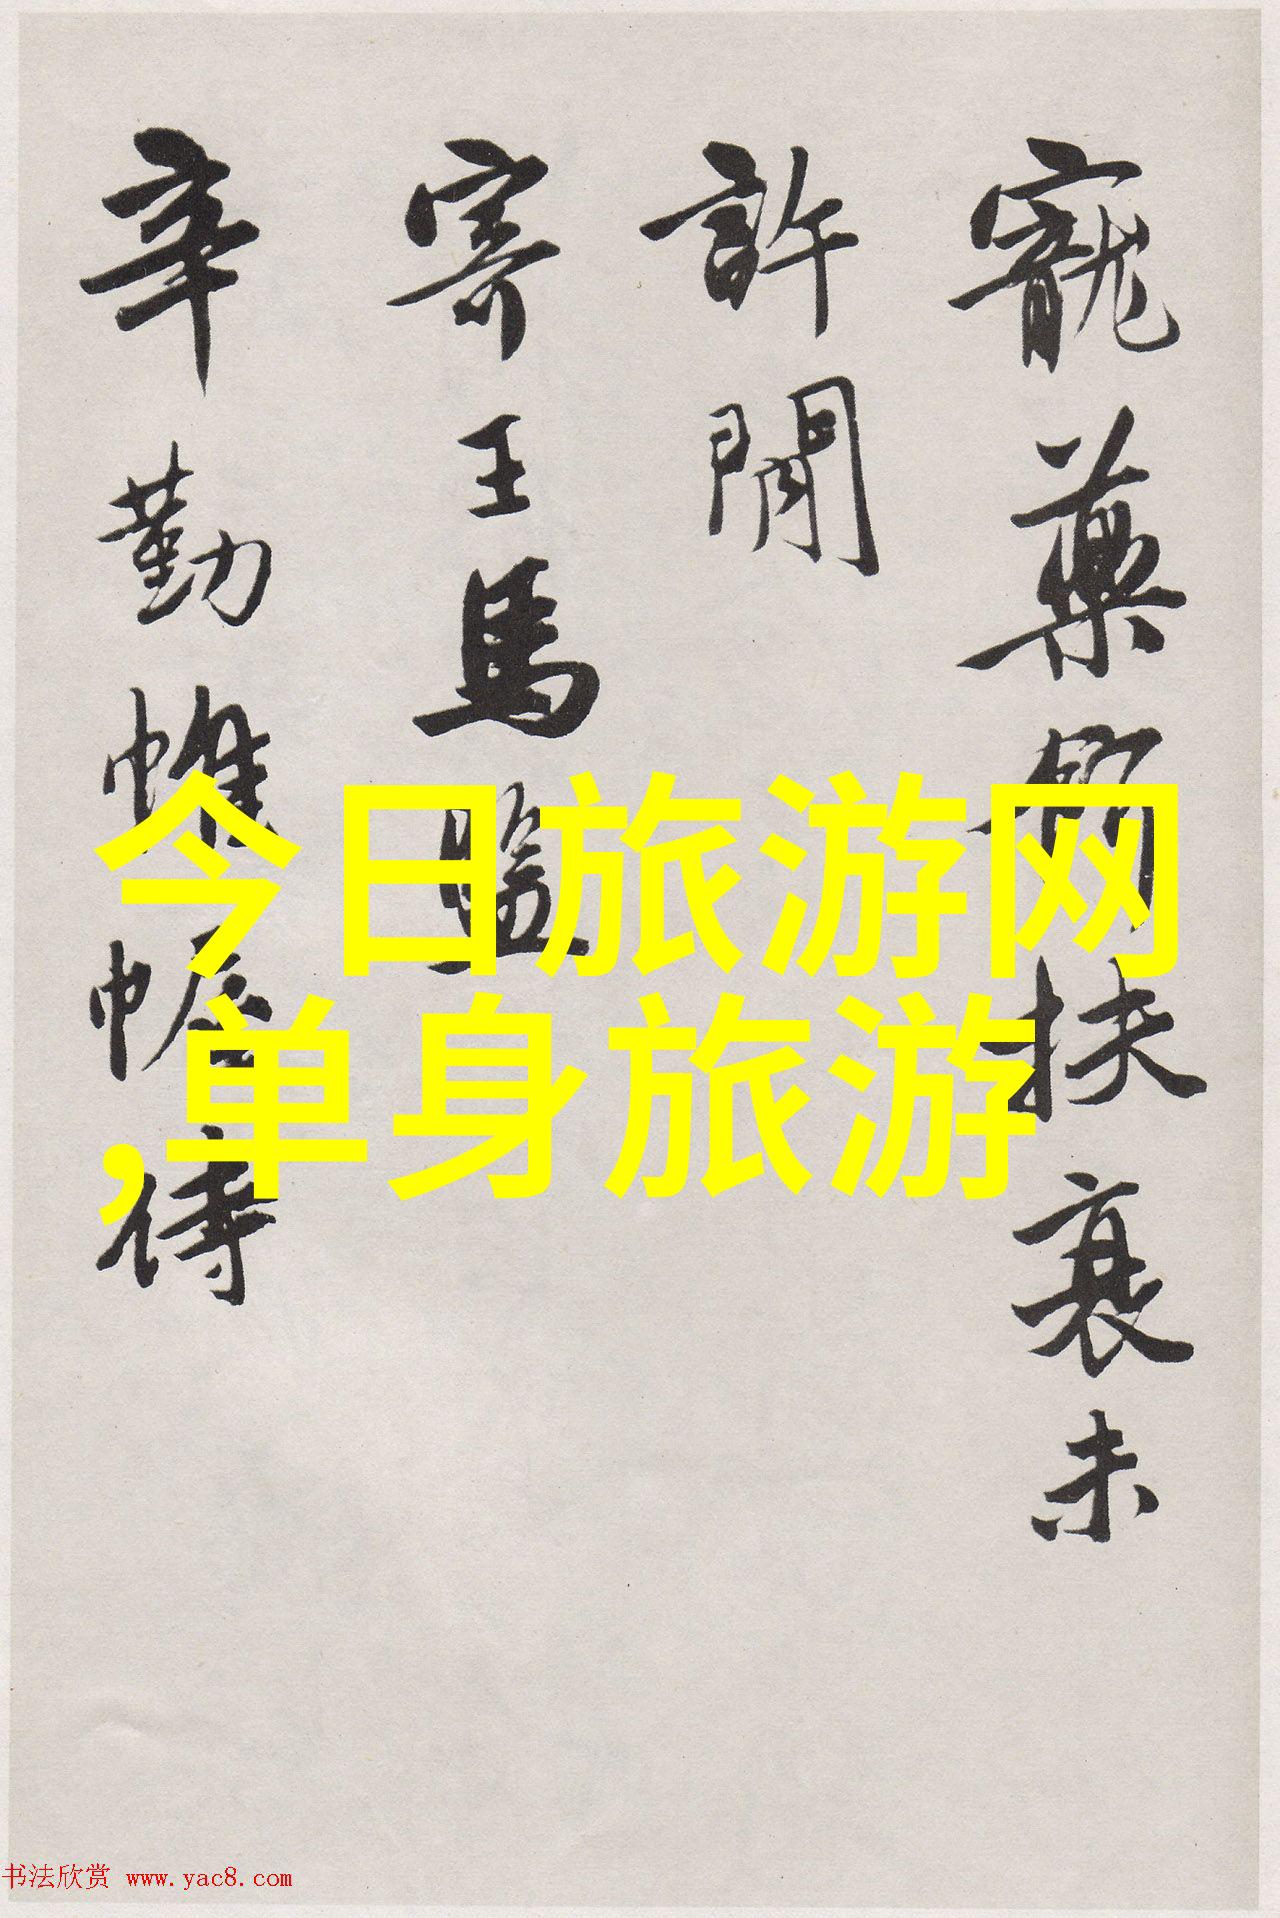 寵藥餌扶衰未
許閒
寄王馬監
辛勤帷幄待
今日旅游网
,单身旅游
书法欣赏 www.yac8.com